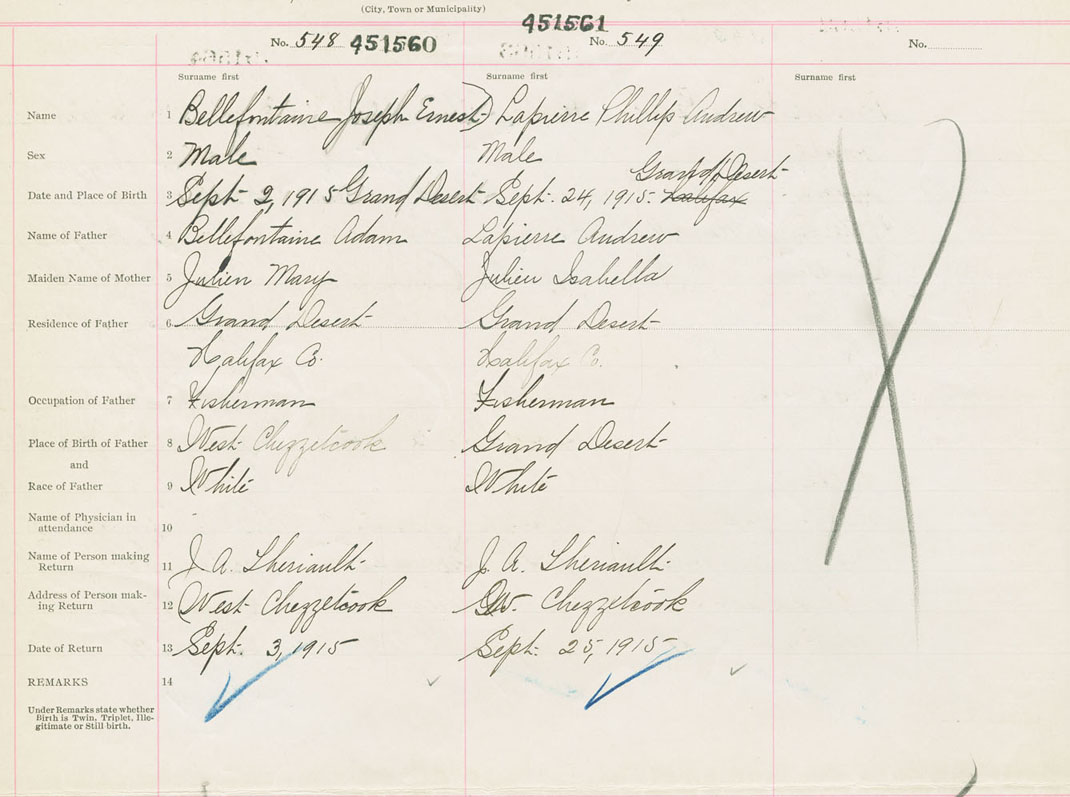 (City, Town or Municipality)
No. 548 451560
451561
No. 549
No.
Surname first Surname first Surname first
Name 1 Bellefontaine Joseph Ernest) Lapierre Phillip Andrew
Sex 2 Male Male
Grand Desert
Date and Place of Birth 3 Sept 2, 1915 Grand Desert Sept. 24, 1915. Halifax
Name of Father 4 Bellefontaine Adam Lapierre Andrew
Maiden Name of Mother 5 Julien Mary Julien Isabella
Residence of Father 6 Grand Desert Grand Desert
Halifax Co. Halifax Co.
Occupation of Father 7 Fisherman Fisherman
Place of Birth of Father 8 West Chezzetcook Grand Desert
and
Race of Father 9 White White
Name of Physician in
attendance 10
Name of Person making
Return 11 J. A. Theriault J. A. Theriault
Address of Person mak-
ing Return 12 West Chezzetcook W. Chezzetcook
Date of Return 13 Sept. 3, 1915 Sept. 25, 1915
REMARKS 14
Under Remarks state whether
Birth is Twin, Triplet, Ille-
gitimate or Still birth.